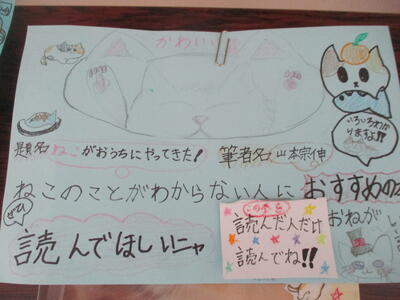 かわいい
いろいろわか
りますよ!!
題名 ねこがおうちにやってきた!
筆者名 山本宗伸
ねこのことがわからない人に おすすめの本
ぜひ
読んでほしいニャ
おねがい
この本を
読んだ人だけ
読んでね!!